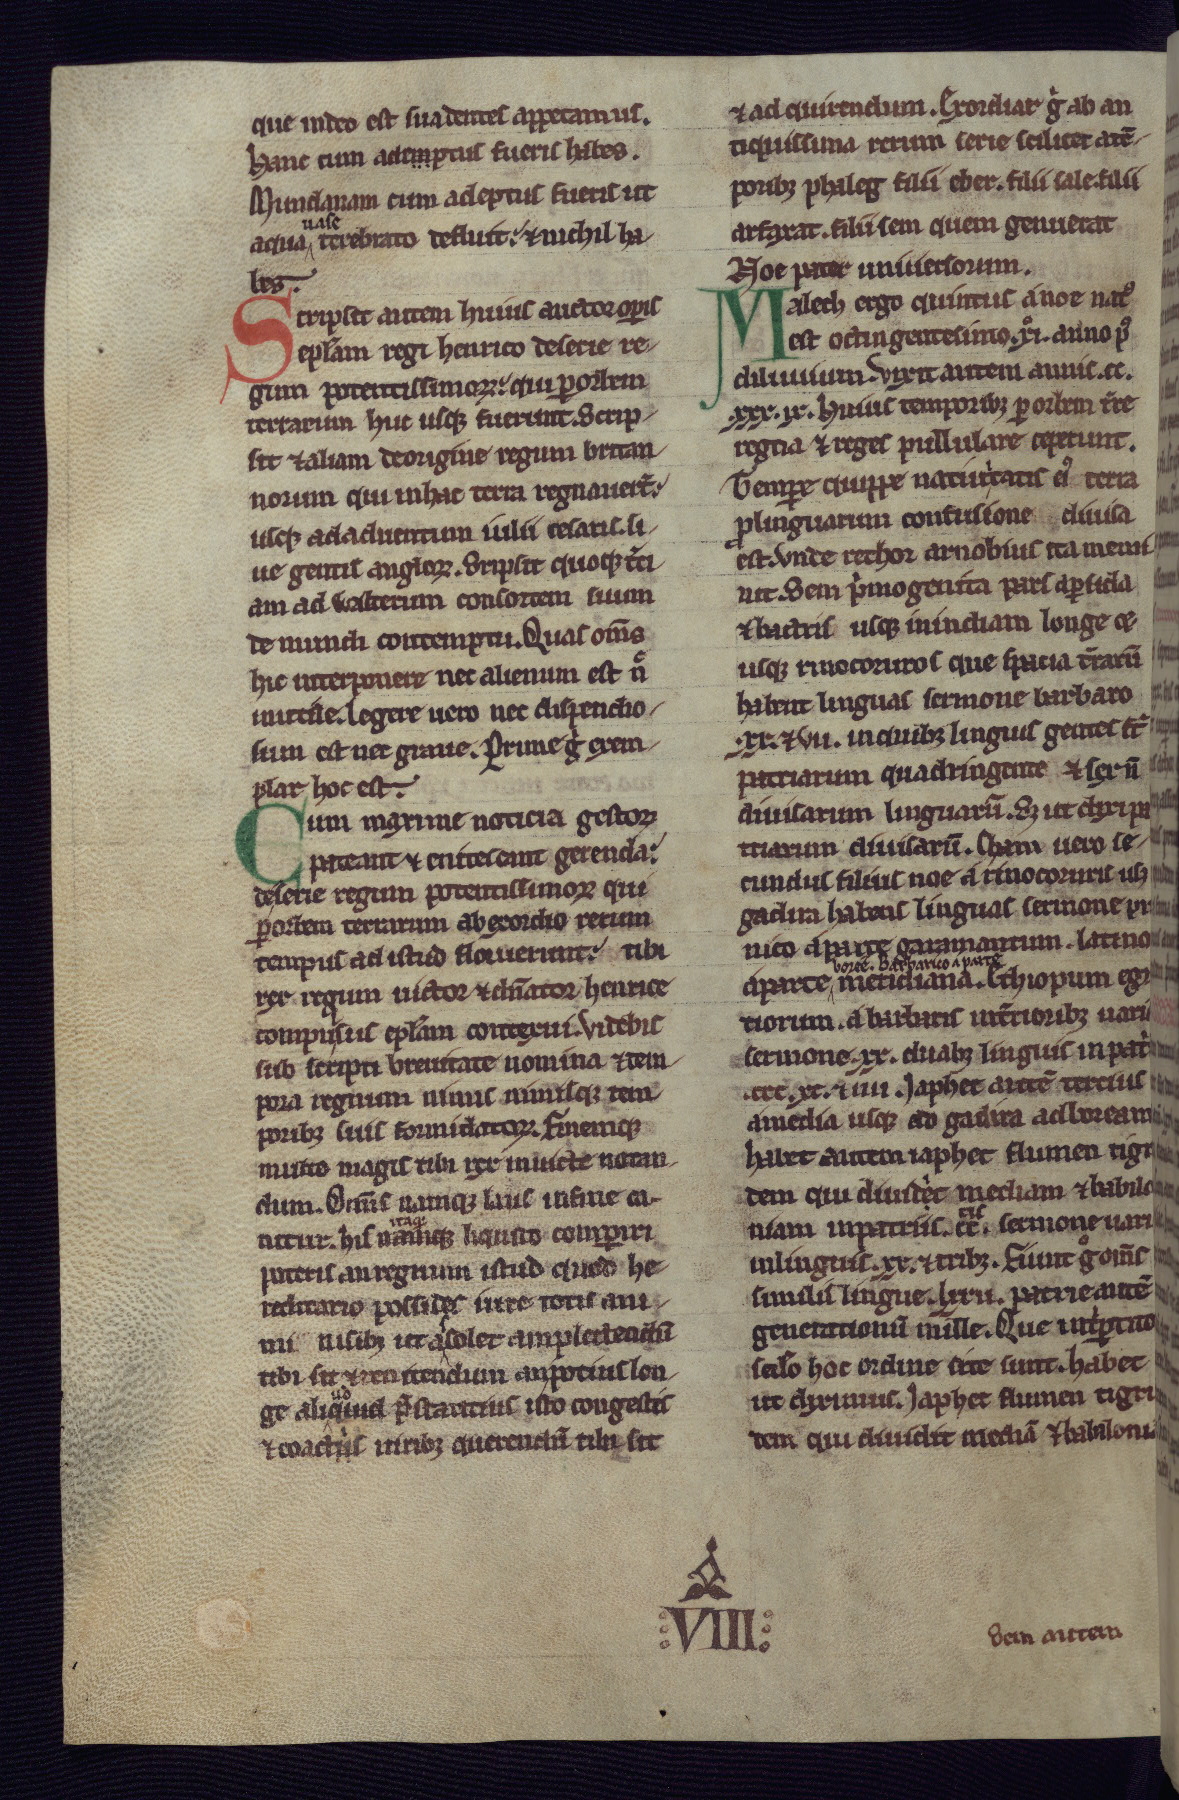 que in deo est suadentes appetamus.
hanc cum ademptus fueris habes.
Mundanam cum adeptus fueris ut
uase
aqua terebrato defluit. & nichil ha
bes.
Scripsit autem huius auctor operis
eplam regi henrico de serie re
gum potentissimorꝝ. qui per orbem
terrarum huc usqꝫ fuerunt. Scrip
sit & aliam de origine regum britan
norum qui in hac terra regnauert.
usqꝫ ad aduentum iulii cesaris. si
ue gentis anglorꝝ. Sripsit quoqꝫ tci
am ad Walterum consortem suum
de mundi contemptu. Quas oms
hic interponere nec alienum est n
inutile. Legere uero nec dispendio
sum est nec graue. Prime g exem
plar hoc est.
Cum maxime noticia gestorꝝ
pateant & enitescant gerenda.
de serie regum potentissimorꝝ qui
ꝑ orbem terrarum ab exordio rerum
tempus ad istud floruerunt. tibi
rex regum uictor & dnator henrice
compulsus eplam contexui. Videbis
sub scripti breuitate nomina & tem
pora regnum nimis nimisqꝫ tem
poribꝫ suis formidatorꝝ. Finemqꝫ
multo magis tibi rex inuicte notan
dum. Omis namqꝫ laus in fine ca
itaqꝫ
nitur. his namqꝫ liquido comperiri
poteris an regnum istud quod he
reditario possides iure totis ani
mi nisibꝫ ut asolet amplectendū
tibi sit & renitendum an potius lon
ud
ge aliquid pstantius isto congestis
& coactis uiribꝫ querendū tibi sit
& ad quirendum. Exordiar g ab an
tiquissima rerum serie scilicet a tē
poribꝫ phaleg filii eber. filii sale. filii
arfaxat. filii sem quem genuerat
Noe pater uniuersorum.
Malech ergo quintus a noe nat
est octingentesimo. xi. anno p
diluuium. Vixit autem annis. cc.
.xxx. ix. Huius temporibꝫ ꝑ orbem tre
regna & reges pullulare ceperunt.
Tempore quippe natiuitatis ei terra
ꝑ linguarum confusione diuisa
est. Vnde rethor arnobius ita memi
nit. Sem pmogenita pars a persida
& bactris usqꝫ in indiam longe &
usqꝫ rinocoruros que spacia trarū
habent linguas sermone barbaro
.xx. & vii. in quibꝫ linguis gentes st
patriarum quadringente & sex n
diuisarum linguarū. Sꝫ ut dixi pa
triarum diuisarū. Cham uero se
cundus filius noe a rinocoruris usqꝫ
gadira habens linguas sermone pu
nico a parte garamantum. latino
boree. Barbarico a parte
a parte meridiana. Ethiopum egi
ptiorum. a barbaris interioribꝫ uari
sermone. xx. duabꝫ linguis in pat
.ccc. xc. & iiii. Japhet autē tercius
a media usqꝫ ad gadira ad boream
habet autem iaphet flumen tigri
dem qui diuidet mediam & babilo
tis
niam in patriis. cc. sermone uari
in linguis. xx. & tribꝫ. Fiunt g oms
similis lingue. lxxii. patrie autē
generationū mille. Que in tripertito
sclo hoc ordine site sunt. habet
ut diximus. Japhet flumen tigri
dem qui diuidit mediā & babiloni
VIII
Sem autem